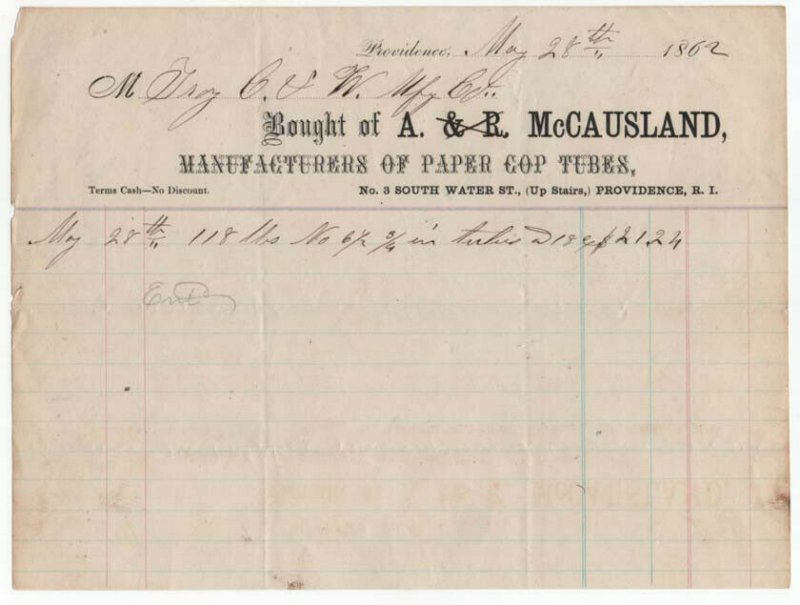 Providence, May 28th 1862
M Troy C. & W. Mfg Co.
Bought of A. & R. McCAUSLAND,
MANUFACTURERS OF PAPER COP TUBES,
Terms Cash—No Discount. No. 3 SOUTH WATER ST., (Up Stairs,) PROVIDENCE, R. I.
May 28th 118 lbs No 6½ in tubes 18 21.24